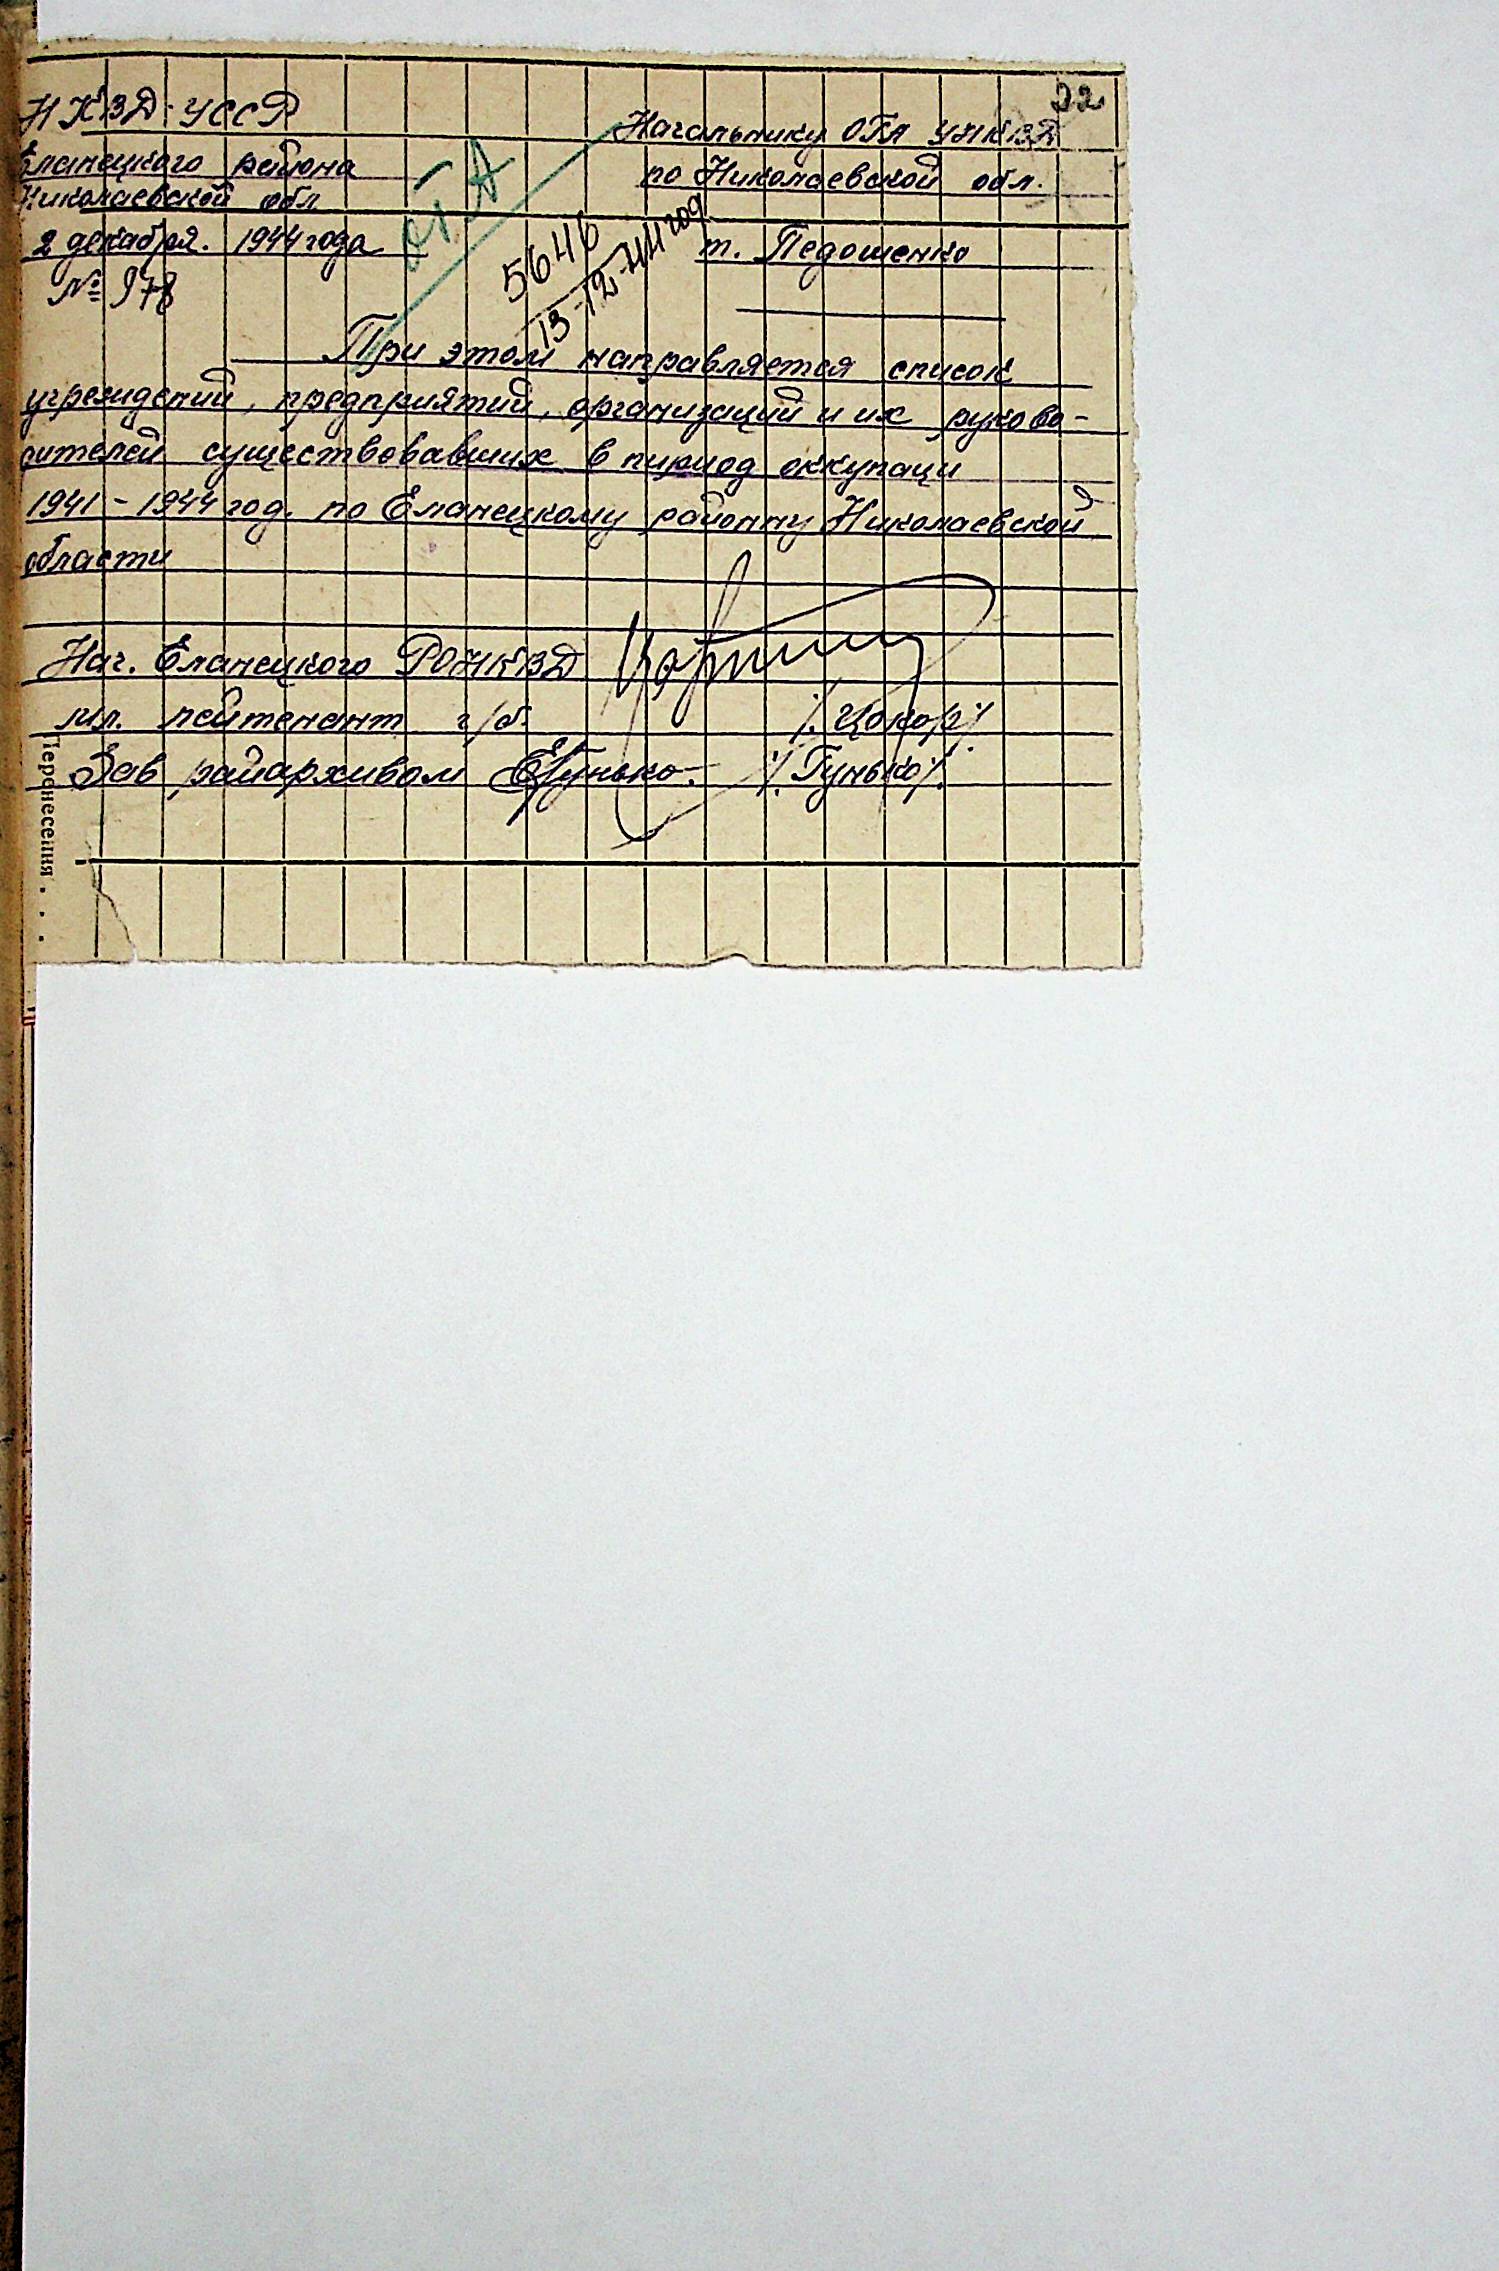 22
НКВД-УССР
Еланецкого района
Николаевской обл
2 декабря. 1944 года
№ 978
Начальнику ОГА УНКВД
по Николаевской обл.
т. Педошенко
ОГА
5646
13-12-44 год
При этом направляется список
учреждений, предприятий, организаций и их руково-
дителей существовавших в период оккупаци
1941-1944 год. по Еланецкому районну Николаевской
области
Нач. Еланецкого РОНКВД
мл. лейтенант г/б. /. Цокор /.
Зав райархивом ЕГунько. /. Гунько /.
Перенесения . . .